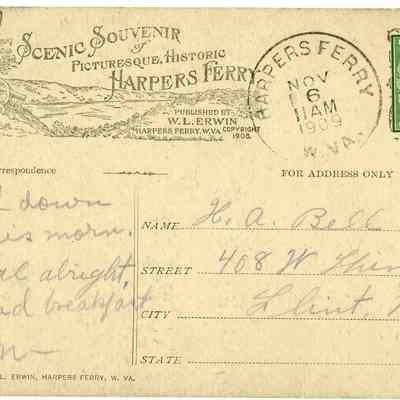 SCENIC SOUVENIR
of
PICTURESQUE, HISTORIC
HARPERS FERRY
PUBLISHED BY
W. L. ERWIN
HARPERS FERRY, W. VA.
COPYRIGHT
1908.
HARPERS FERRY
NOV
6
11 AM
1909
W. VA.
respondence
FOR ADDRESS ONLY
down
morn.
alright,
breakfast
NAME H. A. Bell
STREET 408 W
CITY Flint,
STATE
L. ERWIN, HARPERS FERRY, W. VA.